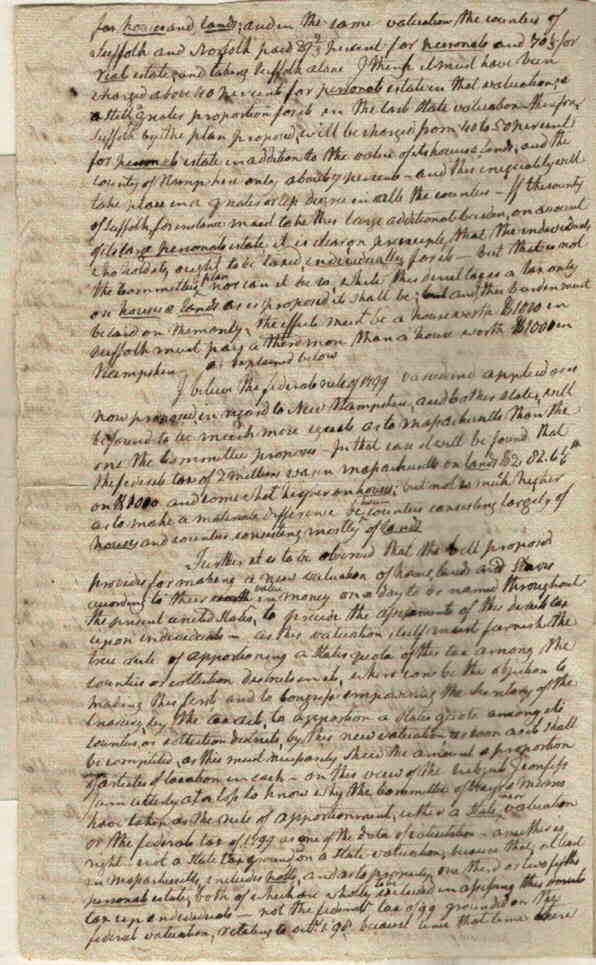 for houses and lands; and in the same valuation, the counties of
Suffolk and Norfolk paid 29 2/3 percent for personals and 70 1/3 for
real estate; and taking Suffolk alone I think it must have been
charged above 40 percent for personal estate in that valuation; &
a still greater proportion for it in the last State valuation therefore
Suffolk by the plan proposed, will be charged from 40 to 50 percent
for personal estate in addition to the value of its houses & lands, and the
county of Hampshire only about 7 percent — and this inequality will
take place in a greater or less degree in all the counties — If the county
of Suffolk, for instance must take this large additional burden, on account
of its large personal estate, it is clear on principle, that the individuals
who hold it, ought to be taxed, individually for it — but that is not
the Committee's plan nor can it be so, while this direct tax is a tax only
on houses & lands as is proposed it shall be; and this burden must
be laid on them only, the effect must be a house worth $1000 in
Suffolk must pay a third more than a house worth $1000 in
Hampshire as explained below
I believe the federal rule of 1799 varied and applied as is
now proposed, in regard to New Hampshire, and other states, will
be found to be much more equal as to Massachusetts than the
one the Committee proposes — In that case it will be found that
the federal tax of 2 millions was in Massachusetts on lands $2. 82. 6
on $1000 and somewhat higher on houses; but not so much higher
as to make a material difference between counties consisting largely of
houses and counties consisting mostly of land
Further it is to be observed that the bill proposed
provides for making a new valuation of houses, lands and slaves
according to their value in money on a day to be named throughout
the present united States, to precede the assessments of this direct tax
upon individuals — as this valuation itself must furnish the
true rule of apportioning a States quota of this tax among the
counties or collection districts in it, where can be the objection to
making this first and to Congress empowering the Secretary of the
treasury, by the act, to apportion a States quota among its
counties, or collection districts, by this new valuation as soon as it shall
be completed, as this must necessarily shew the amount & proportion
of articles of taxation in each — on this view of the subject I confess
I am utterly at a loss to know why the Committee of ways & means
have taken as the rule of apportionment, either a State tax or valuation
or the federal tax of 1799 as one of the data of calculation — neither is
right not a State tax grounded on a State valuation, because that, at least
in Massachusetts, includes polls, and as to property, one third or two fifths
personal estate, both of which are wholly excluded in assessing this direct
tax upon individuals — not the federal tax of 99 grounded on the
federal valuation, relating to Octr. 1. 98. because since that time there